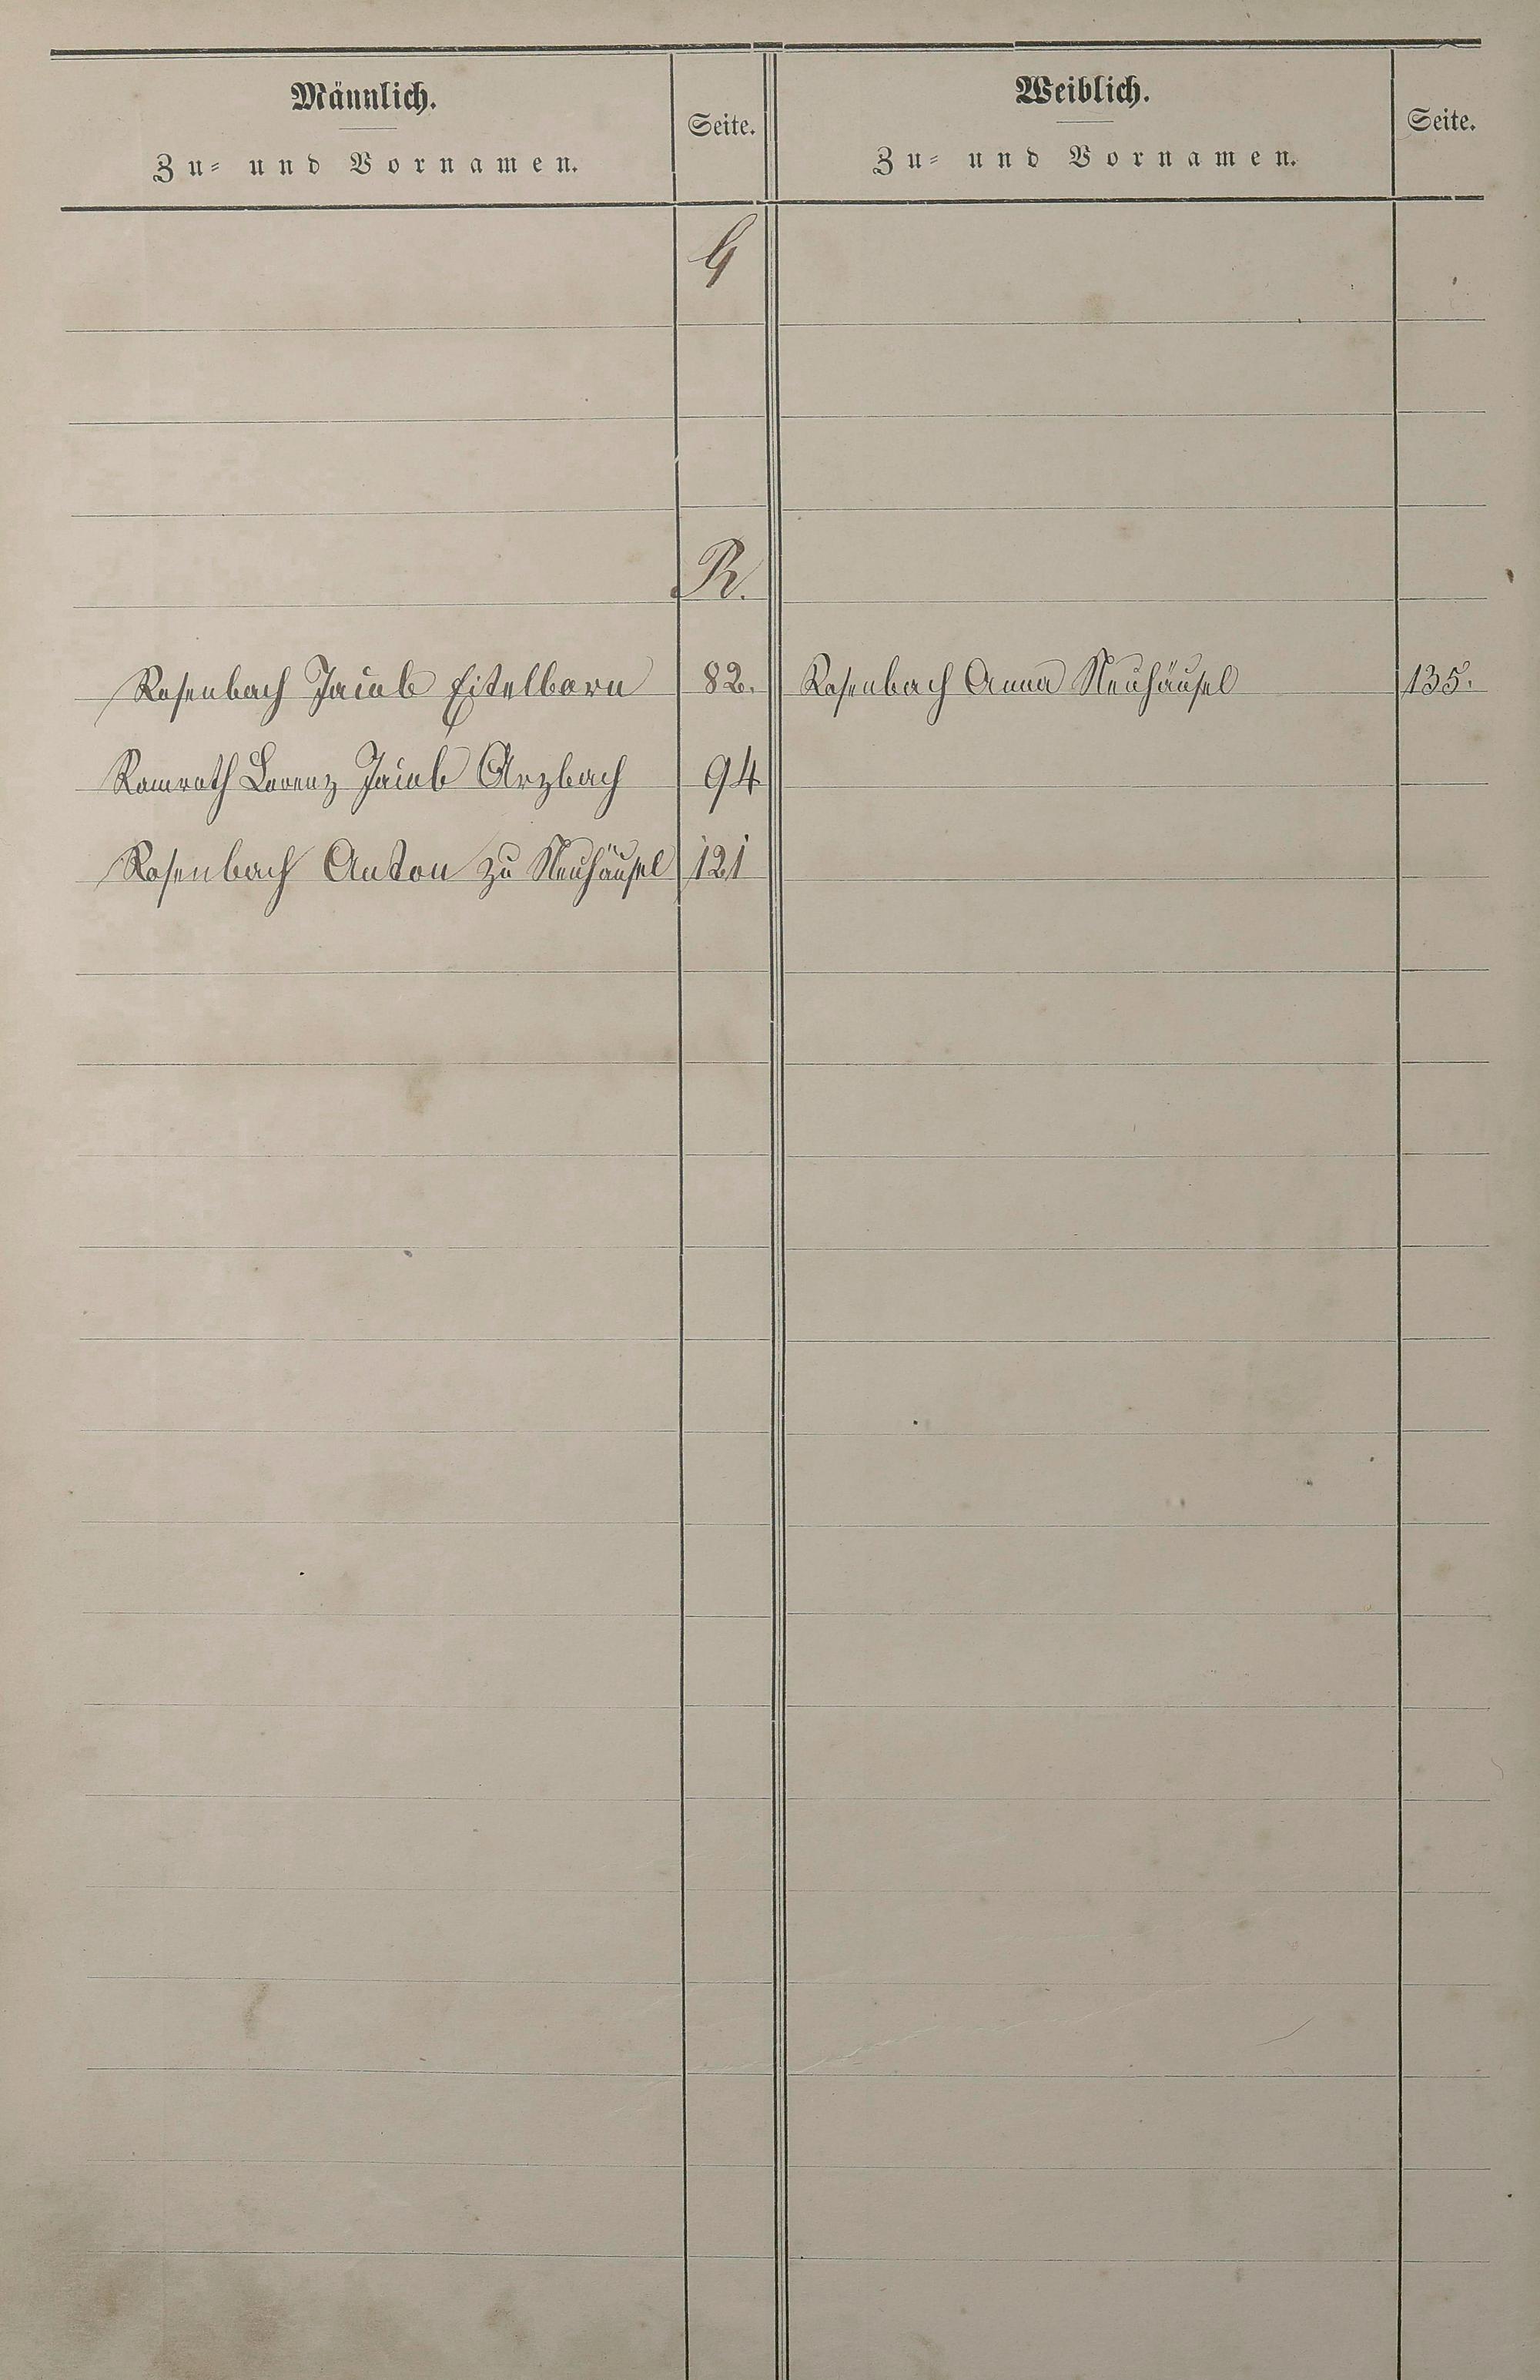 Männlich.
Zu- und Vornamen.
Seite.
Weiblich.
Zu- und Vornamen.
Seite.
R.
Rosenbach Jacob Eitelborn 82. Rosenbach Anna Neuhäusel 135.
Ramroth Lorenz Jacob Arzbach 94
Rosenbach Anton zu Neuhäusel 121